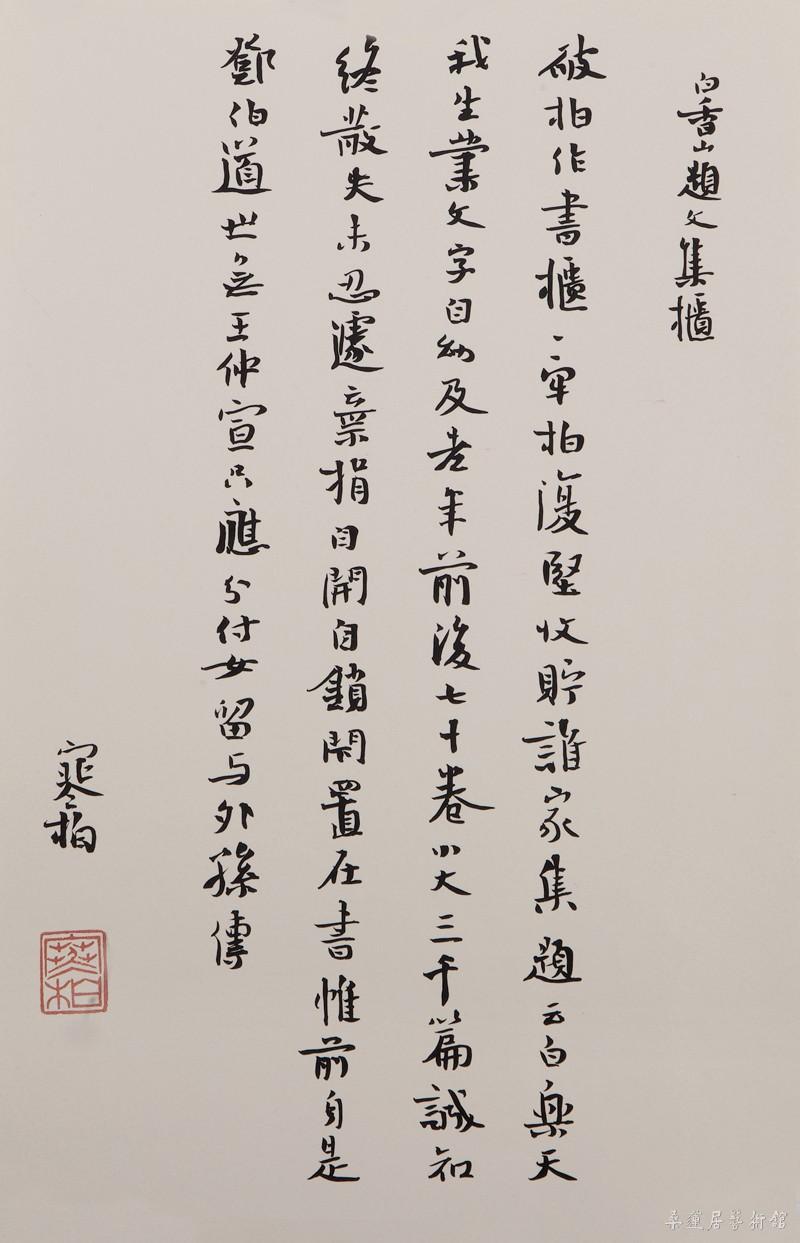 白香山題文集櫃
破柏作書櫃〻牢柏復堅收貯誰家集題云白樂天
我生業文字自幼及老年前後七十卷小大三千篇誠知
終散失未忍遽棄捐自開自鎖閉置在書惟前身是
鄧伯道世無王仲宣只應分付女留与外孫傳
寒柏
寒柏
桑蓮居藝術館